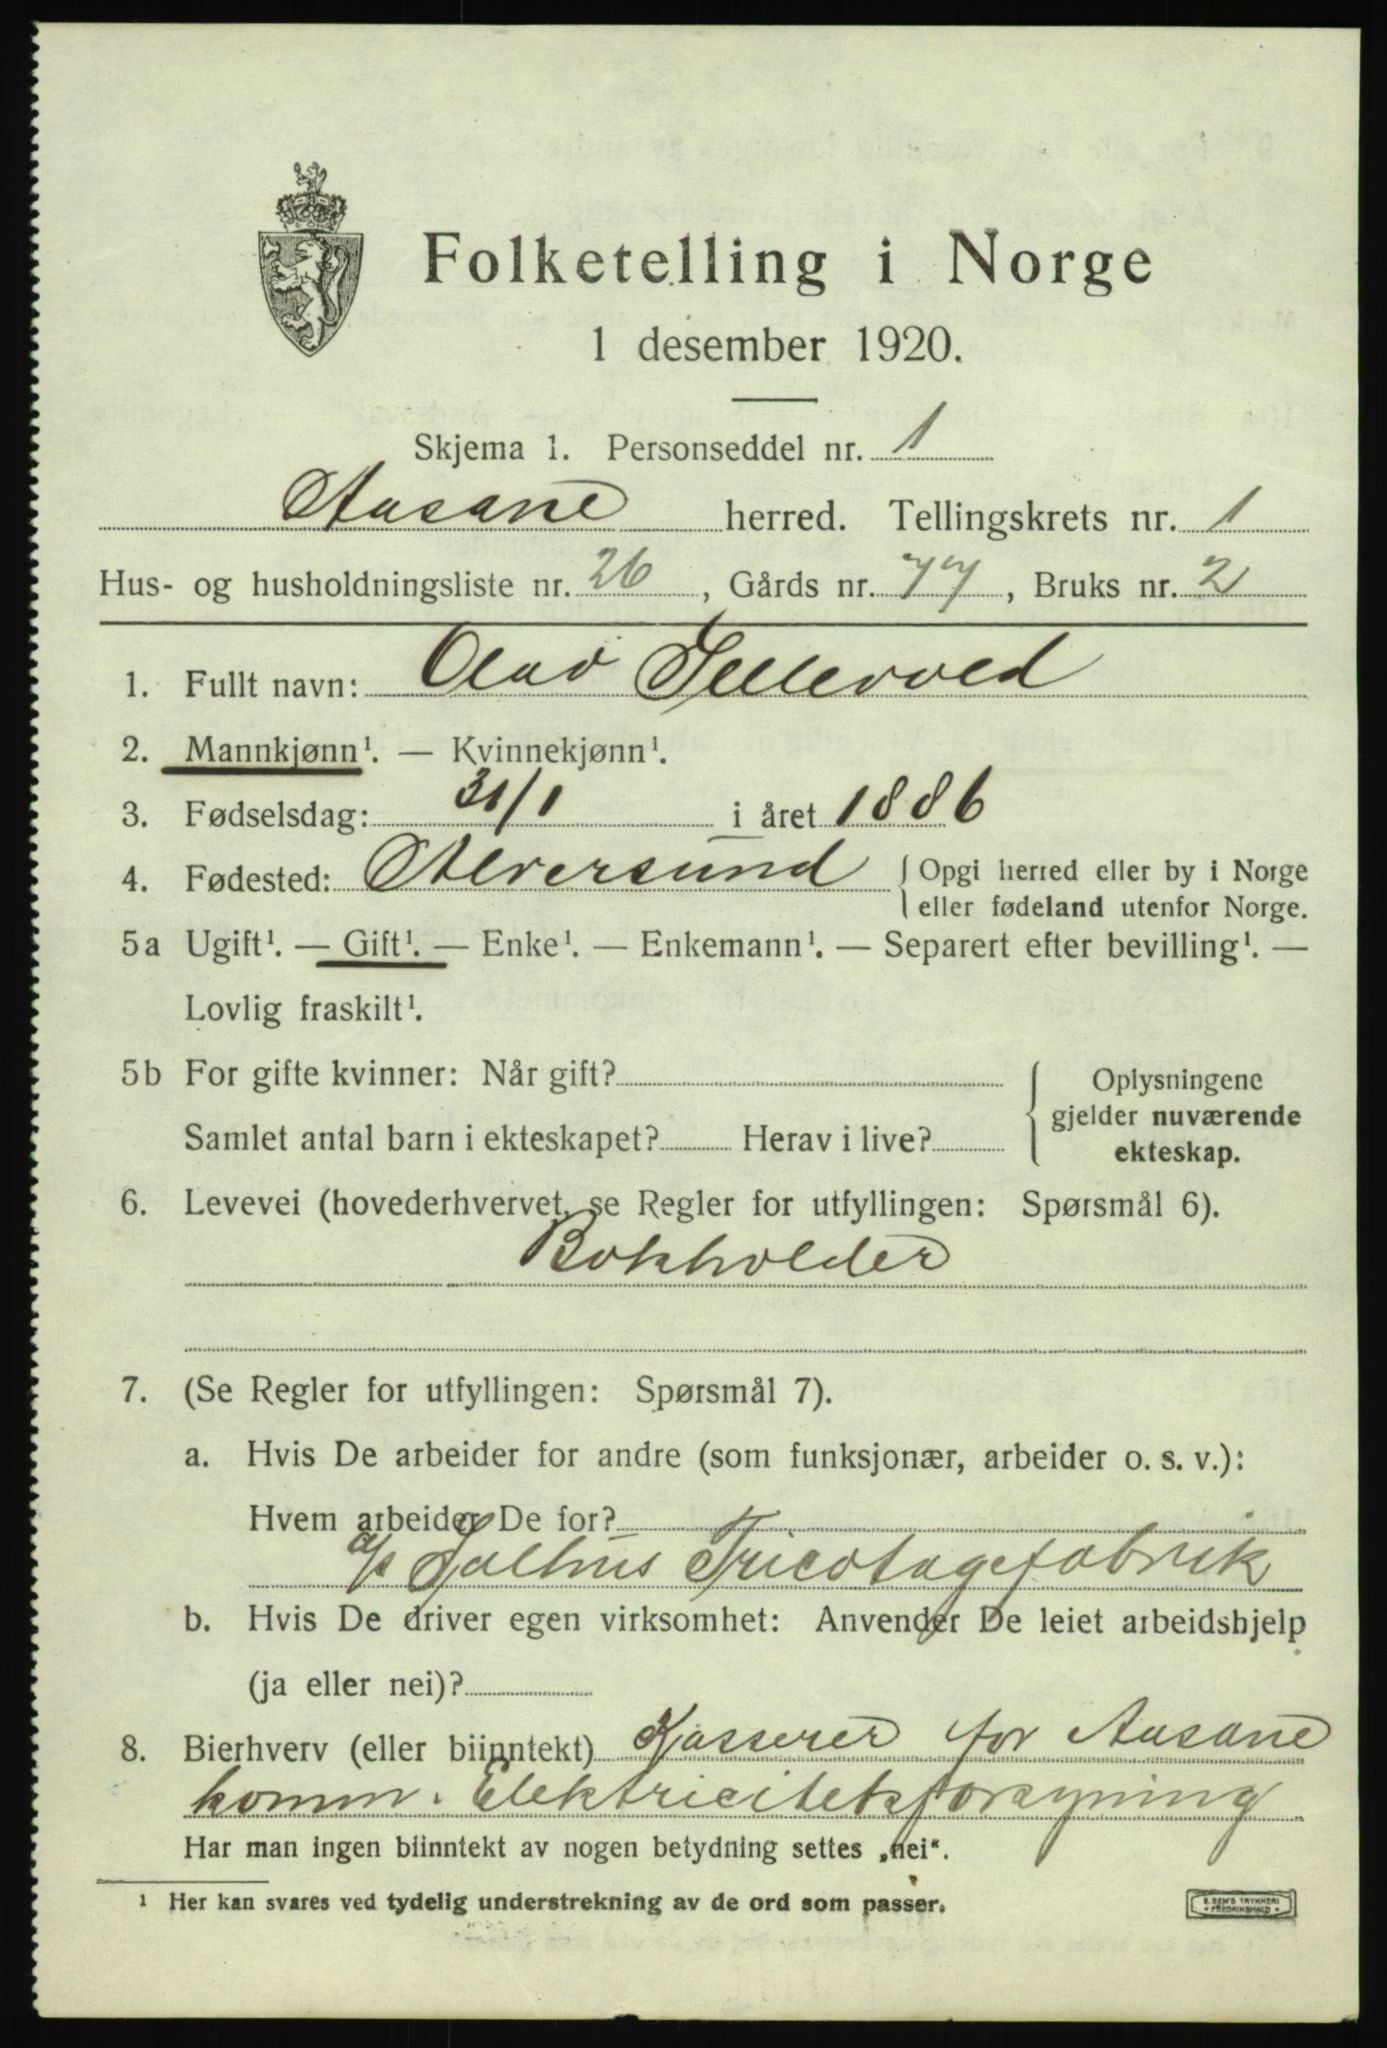 Folketelling i Norge
1 desember 1920.
Skjema 1. Personseddel nr. 1
Aasane herred. Tellingskrets nr. 1
Hus- og husholdningsliste nr. 26, Gårds nr. 77, Bruks nr. 2
1. Fullt navn: Olav Tellevold
2. Mannkjønn¹. — Kvinnekjønn¹.
3. Fødselsdag: 31/1 i året 1886
4. Fødested: Alversund { Opgi herred eller by i Norge
eller fødeland utenfor Norge.
5a Ugift¹. — Gift¹. — Enke¹. — Enkemann¹. — Separert efter bevilling¹. —
Lovlig fraskilt¹.
5b For gifte kvinner: Når gift? { Oplysningene
gjelder nuværende
Samlet antal barn i ekteskapet? Herav i live? ekteskap.
6. Levevei (hovederhvervet, se Regler for utfyllingen: Spørsmål 6).
Bokholder
7. (Se Regler for utfyllingen: Spørsmål 7).
a. Hvis De arbeider for andre (som funksjonær, arbeider o. s. v.):
Hvem arbeider De for?
a/s Salhus Tricotagefabrik
b. Hvis De driver egen virksomhet: Anvender De leiet arbeidshjelp
(ja eller nei)?
8. Bierhverv (eller biinntekt) Kasserer for Aasane
komm. Elektricitetsforsyning
Har man ingen biinntekt av nogen betydning settes „nei“.
¹ Her kan svares ved tydelig understrekning av de ord som passer.
E. SEM'S TRYKKERI
FREDRIKSHALD